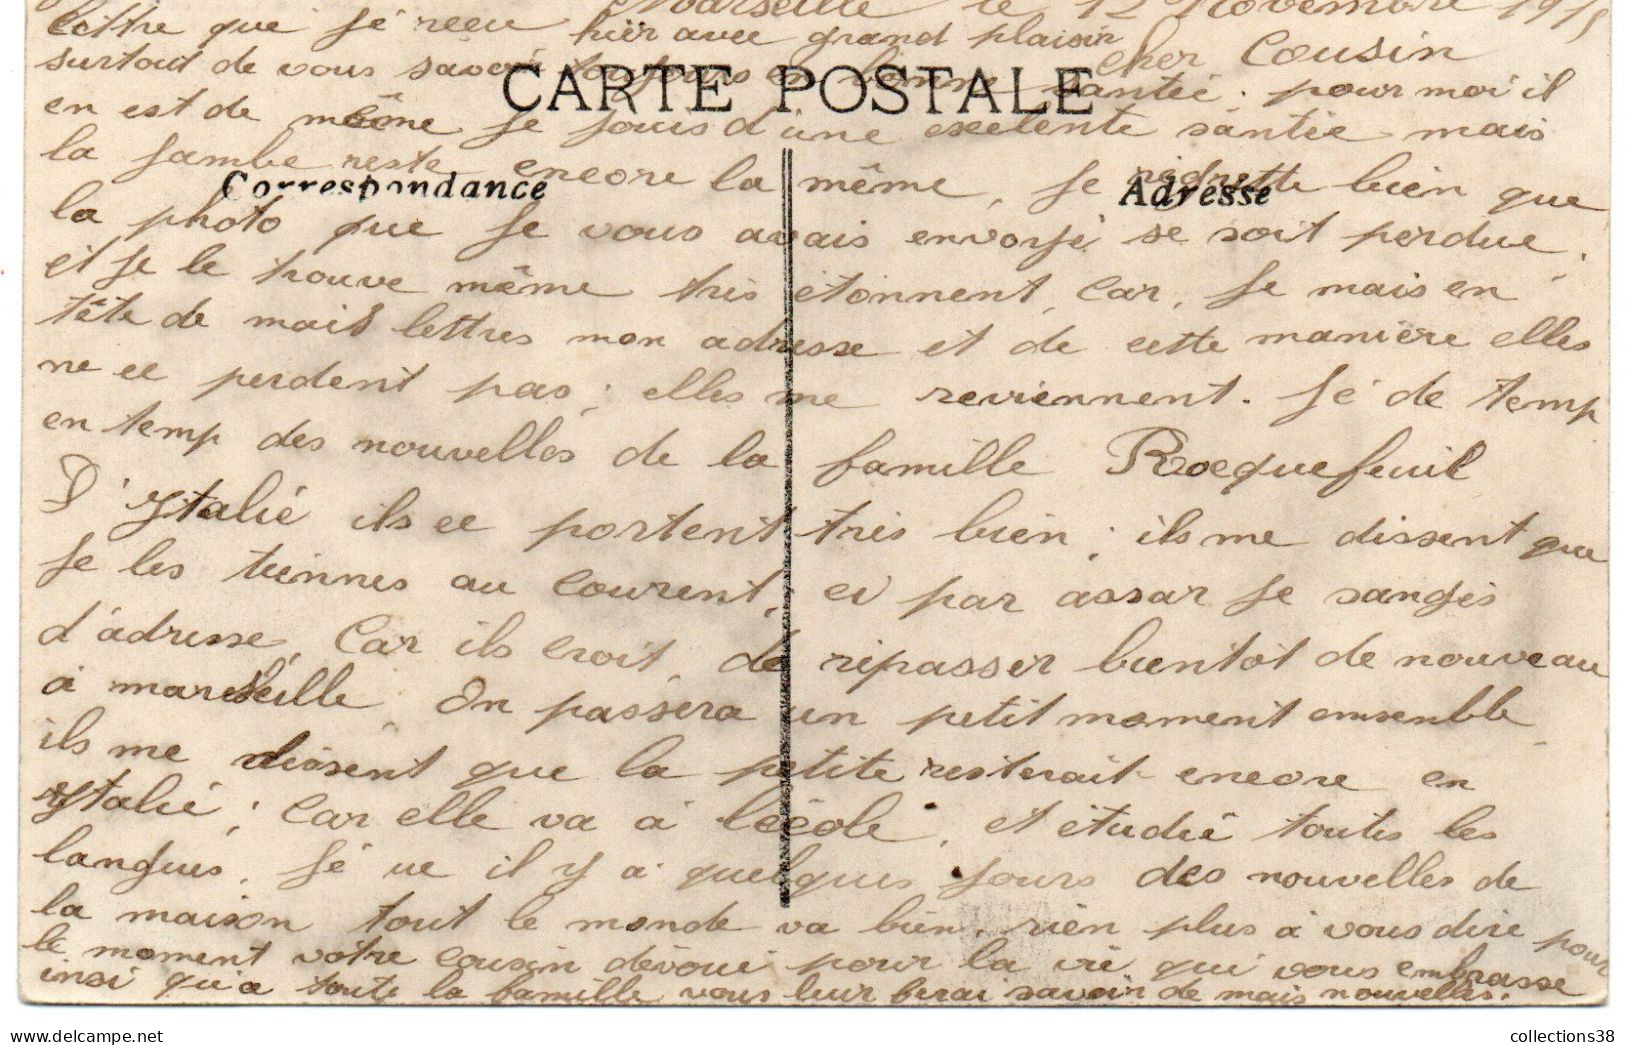 Marseille le 12 Novembre 191
cher Cousin
lettre que jé reçu hièr avec grand plaisir
surtout de vous savoir toujours en bonne santée. pour moi il
CARTE POSTALE
en est de même je jouis d'une exelente santée mais
la jambe reste encore la même, je regrette bien que
Correspondance
Adresse
la photo que je vous avais envoyé se soit perdue,
et je le trouve même très étonnent, Car, je mais en
tête de mais lettres mon adresse et de cette manière elles
ne ce perdent pas; elles me reviennent. Jé de temp
en temp des nouvelles de la famille Rocquefeuil
D'ytalié ils ce portent très bien; ils me dissent que
je les tiennes au courent, ci par assar je sanges
d'adresse, Car ils croit de repasser bientot de nouveau
à marseille, On passera un petit moment ensenble
ils me dissent que la petite resterait encore en
ytalié; Car elle va à l'école, et étudié toutes les
langues. Jé ue il y a quelques jours des nouvelles de
la maison tout le monde va bien, rien plus à vous dire pour
le moment votre cousin dévoué pour la vie qui vous embrasse
insi qu'a toute la famille vous leur ferai savoir de mais nouvelles.
collections38